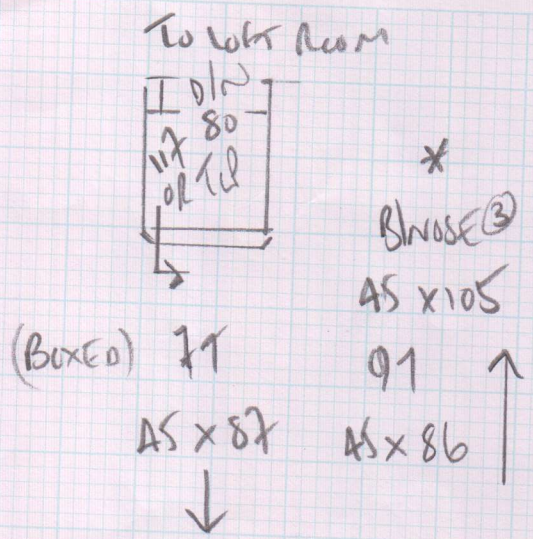 To Loft Room
D/N
80
117
OR TCP
*
B/NOSE ③
45 x 105
(BOXED) 71
91
45 x 87
45 x 86